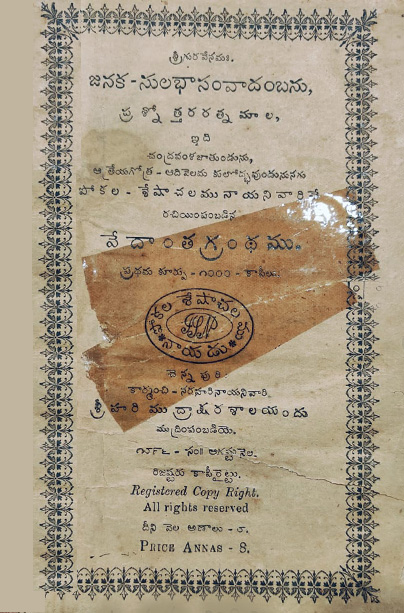 శ్రీగురవేనమః.
జనక-సులభాసంవాదంబను,
ప్రశ్నోత్తరరత్నమాల,
ఇది
చంద్రవంశజాతుండును,
ఆత్రేయగోత్ర-ఆదివెలమ
పోకల-శేషాచలమునాయని వారిచే
రచియింపంబడిన
వేదాంతగ్రంథము.
ప్రథమ కూర్పు-౧౦౦౦-కాపీలు.
పోకల శేషాచల నాయుడు
చెన్నపురి.
కార్మంచి-నరహరినాయనివారి,
శ్రీహరిముద్రాక్షరశాలయందు
ముద్రింపంబడియె.
సం॥ ఆగష్టునెల.
రిజష్టరు కాపీరైట్టు.
Registered Copy Right.
All rights reserved
దీని వెల అణాలు-౮.
PRICE ANNAS - 8.